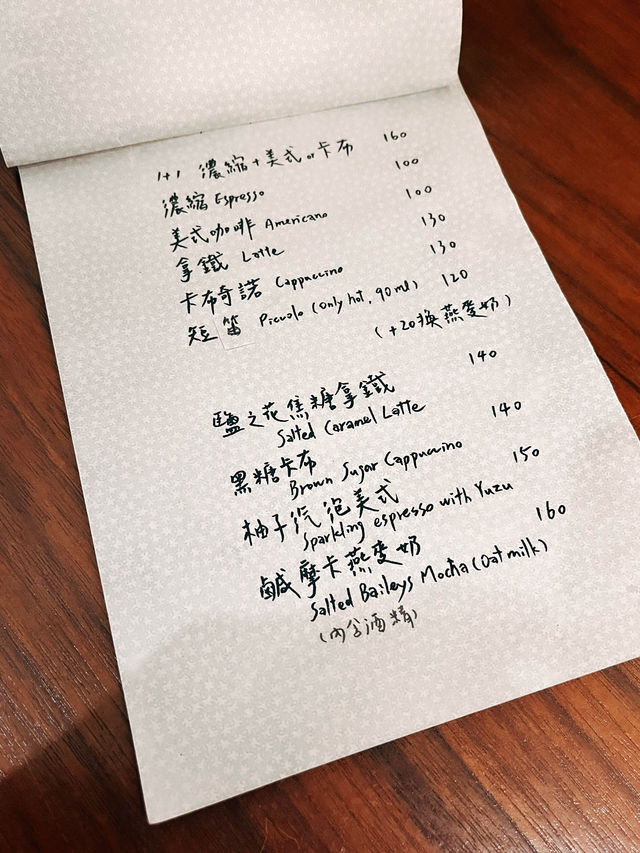 1+1 濃縮+美式or卡布 160
濃縮 Espresso 100
美式咖啡 Americano 100
拿鐵 Latte 130
卡布奇諾 Cappuccino 130
短笛 Piccolo (only hot, 90ml) 120
(+20換燕麥奶)
鹽之花焦糖拿鐵 140
Salted Caramel Latte
黑糖卡布 140
Brown Sugar Cappuccino
柚子汽泡美式 150
Sparkling espresso with Yuzu
鹹摩卡燕麥奶 160
Salted Baileys Mocha (Oat milk)
(內含酒精)